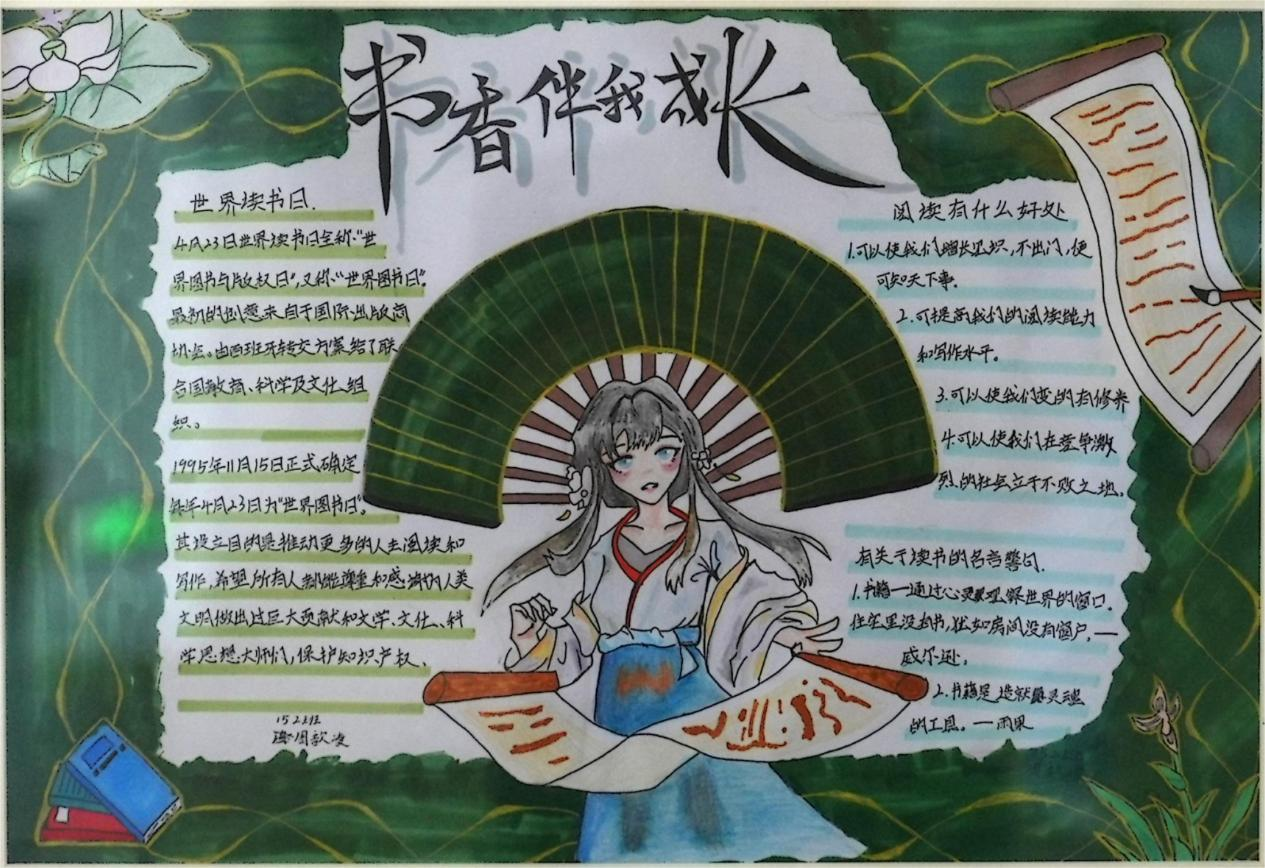 书香伴我成长
世界读书日.
4月23日世界读书日全称“世
界图书与版权日”,又称“世界图书日”.
最初的创意来自于国际出版商
协会。由西班牙转交方案给了联
合国教育、科学及文化组
织。
1995年11月15日正式确定
每年4月23日为“世界图书日”.
其设立目的是推动更多的人去阅读和
写作,希望所有人都能尊重和感谢为人类
文明做出过巨大贡献和文学、文化、科
学思想大师们,保护知识产权、
152班
周歆凌
阅读有什么好处
1.可以使我们增长见识,不出门,便
可知天下事。
2.可提高我们的阅读能力
和写作水平。
3.可以使我们变的有修养
4.可以使我们在竞争激
烈的社会立于不败之地。
有关于读书的名言警句.
1.书籍一通过心灵观察世界的窗口。
住宅里没有书,犹如房间没有窗户,—
威尔逊。
2.书籍是造就灵魂
的工具。—雨果